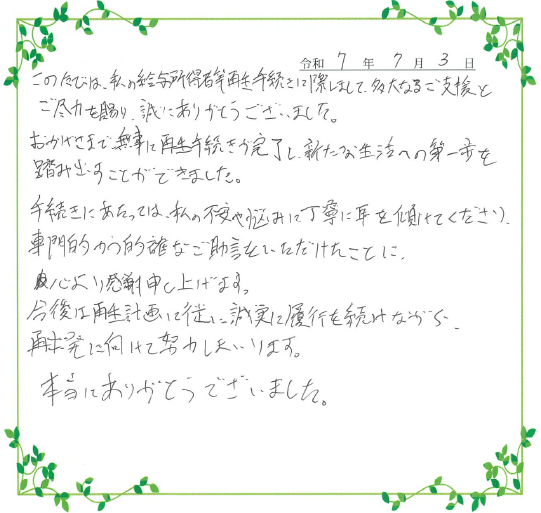 令和 7 年 7 月 3 日
このたびは、私の給与所得者等再生手続きに際しまして、多大なるご支援と
ご尽力を賜り、誠にありがとうございました。
おかげさまで無事に再生手続きが完了し、新たな生活への第一歩を
踏み出すことができました。
手続きにあたっては、私の不安や悩みに丁寧に耳を傾けてくださり、
専門的かつ的確なご助言をいただけたことに、
心より感謝申し上げます。
今後は再生計画に従い、誠実に履行を続けながら、
再出発に向けて努力してまいります。
本当にありがとうございました。